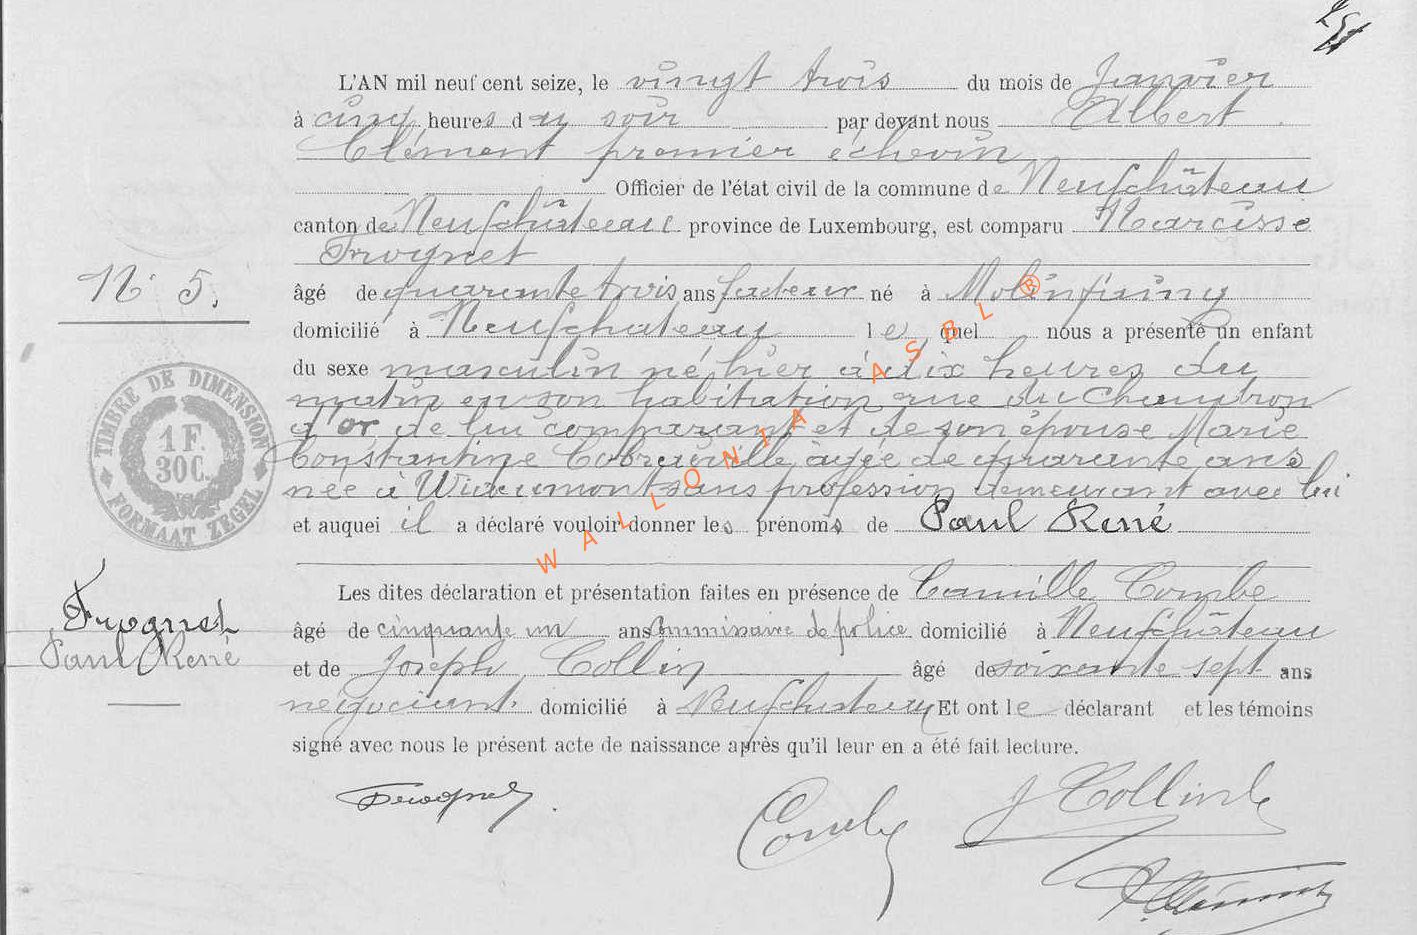 L'AN mil neuf cent seize, le vingt trois du mois de Janvier
à cinq heures du soir par devant nous Albert
Clément premier échevin
Officier de l'état civil de la commune de Neufchâteau
canton de Neufchâteau province de Luxembourg, est comparu Narcisse
Frognet
N° 5.
âgé de quarante trois ans facteur né à Molinfaing
domicilié à Neufchateau lequel nous a présenté un enfant
du sexe masculin né hier à dix heures du
matin en son habitation rue du Chaudron
d'or, de lui comparant et de son épouse Marie
Constantine âgée de quarante ans
née à Wideumont sans profession demeurant avec lui
et auquel il a déclaré vouloir donner les prénoms de Paul René
TIMBRE DE DIMENSION
1 F.
30 C.
FORMAAT ZEGEL
WALLONIA ASBL ®
Les dites déclaration et présentation faites en présence de Camille Combe
âgé de cinquante un ans commissaire de police domicilié à Neufchâteau
et de Joseph Collin âgé de soixante sept ans
négociant. domicilié à Neufchateau Et ont le déclarant et les témoins
signé avec nous le présent acte de naissance après qu'il leur en a été fait lecture.
Frognet
Paul René
Frognet.
Combe
J Collin
AClément